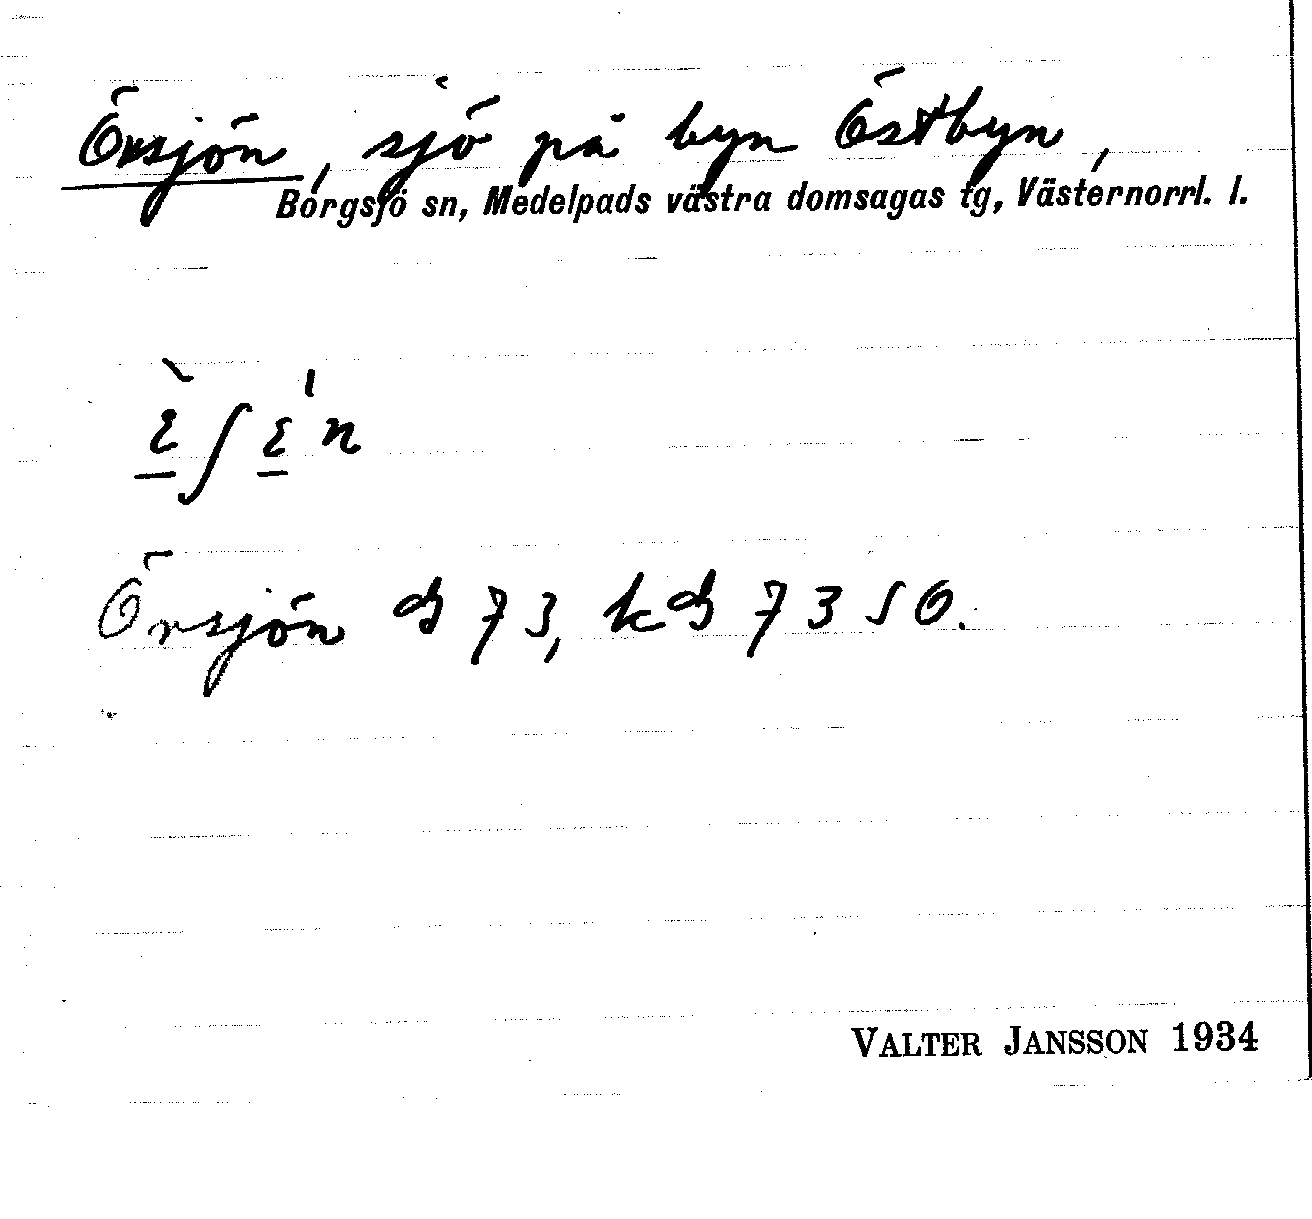 Örsjön, sjö på byn Östbyn,
Borgsjö sn, Medelpads västra domsagas tg, Västernorrl. l.
Örsjön 73, 7350.
VALTER JANSSON 1934